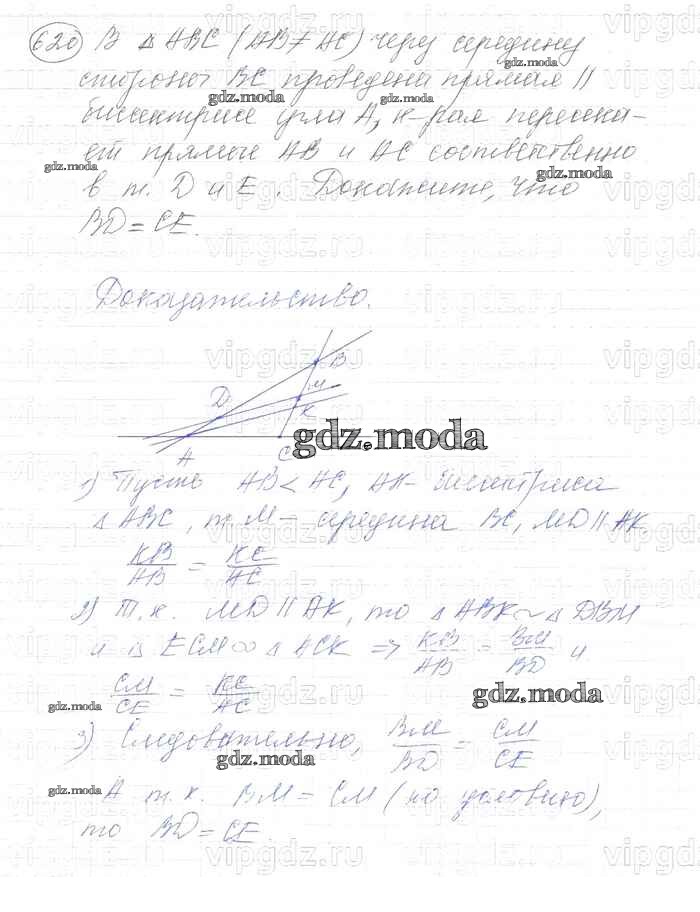 620 В △ ABC (AB ≠ AC) через середину
стороны BC проведена прямая ||
биссектрисе угла A, к-рая пересека-
ет прямые AB и AC соответственно
в т. D и E. Докажите, что
BD = CE.
Доказательство.
B
M
D
K
A C
1) Пусть AB < AC, AK - биссектриса
△ ABC, т. M - середина BC, MD || AK
KB/AB = KC/AC
2) Т.к. MD || AK, то △ ABK ~ △ DBM
и △ ECM ∞ △ ACK => KB/AB = BM/BD и
CM/CE = KC/AC
3) Следовательно, BM/BD = CM/CE
А т.к. BM = CM (по условию),
то BD = CE.
gdz.moda
vipgdz.ru